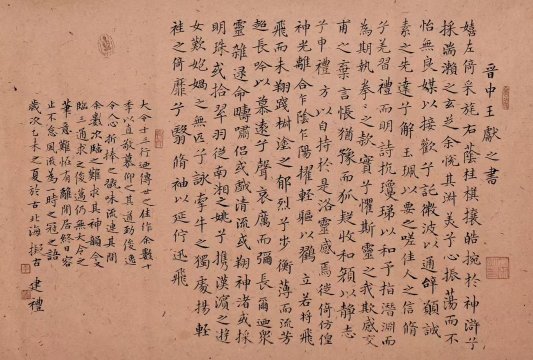 晋中王獻之書
嬉左倚采旄右蔭桂旗攘皓腕於神滸兮
採湍瀨之玄芝余悅其淑美兮心振蕩而不
怡無良媒以接歡兮託微波以通辭願誠
素之先達兮解玉珮以要之嗟佳人之信脩
兮羌習禮而明詩抗瓊珶以和予指潛淵而
為期執拳〻之款實兮懼斯靈之我欺感交
甫之棄言悵猶豫而狐疑收和顏以靜志
兮申禮方以自持於是洛靈感焉徙倚彷徨
神光離合乍陰乍陽擢輕軀以鶴立若將飛
飛而未翔踐椒塗之郁烈兮步衡薄而流芳
超長吟以慕遠兮聲哀厲而彌長爾迺眾
靈雜遝命疇嘯侶或戲清流或翔神渚或採
明珠或拾翠羽從南湘之姚兮携漢濱之遊
女歎匏媧之無匹兮詠牽牛之獨處揚輕
袿之倚靡兮翳脩袖以延佇迅飛
大令十三行迺傳世之佳作余數十
季以直敬慕仰之其遒勁俊逸
令人心折捧之翫味流連其間
余數次臨之難求其神韻今又
臨三遍求之俊邁仍無大令之
筆意難有離閒居終日容
止不怠風流為一時之冠之語
歲次乙未之夏於古北海擬古 建禮